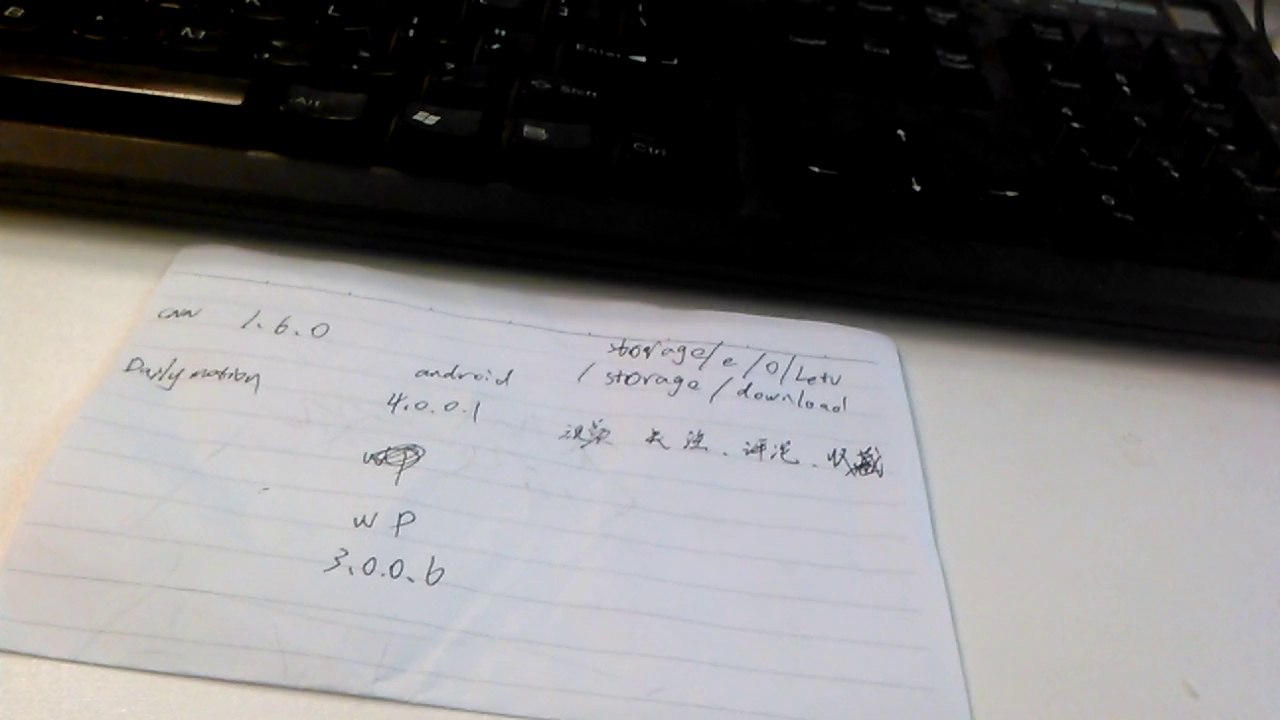 Alt
Enter
Shift
Ctrl
CNN 1.6.0
storage/e/0/Letv
Dailymotion android /storage/download
4.0.0.1
关注、评论、收藏
WP
3.0.0.6